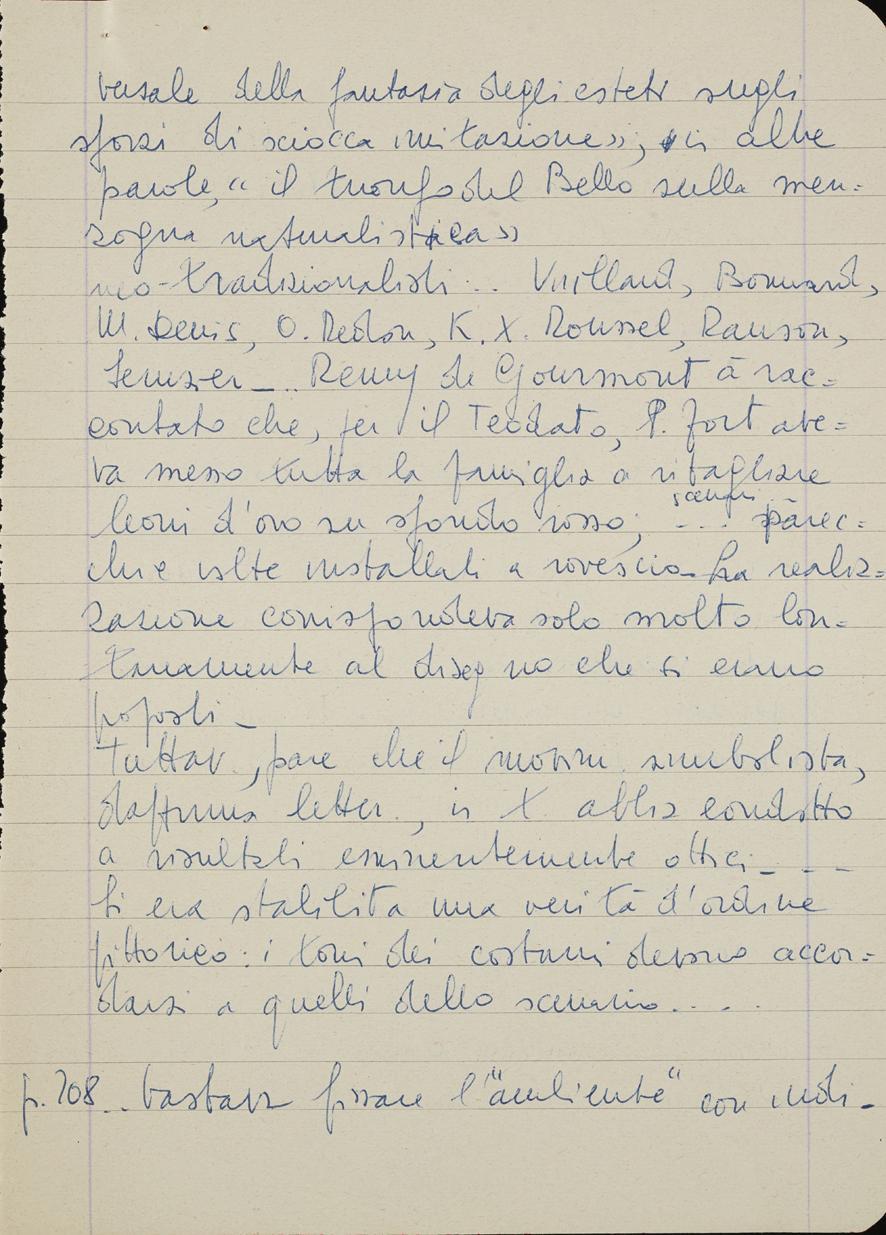 versale della fantasia degli esteti sugli
sforzi di sciocca imitazione»; in altre
parole, « il trionfo del Bello sulla men=
zogna naturalistica»
neo-tradizionalisti... Vuillard, Bonnard,
M. Denis, O. Redon, K. X. Roussel, Ranson,
Serusier_... Remy de Gourmont à rac=
contato che, per il Teodato, P. Fort ave=
va messo tutta la famiglia a ritagliare
leoni d'oro su sfondo rosso; scenari... parec=
chie volte installati a rovescio_ La realiz=
zazione corrispondeva solo molto lon=
tanamente al disegno che si erano
proposti_
Tuttav., pare che il movim. simbolista,
dapprima letter., in t. abbia condotto
a risultati eminentemente ottici_ _ _
Si era stabilita una verità d'ordine
pittorico: i toni dei costumi devono accor=
darsi a quelli dello scenario....
p. 208... bastava fissare l'"ambiente" con indi_